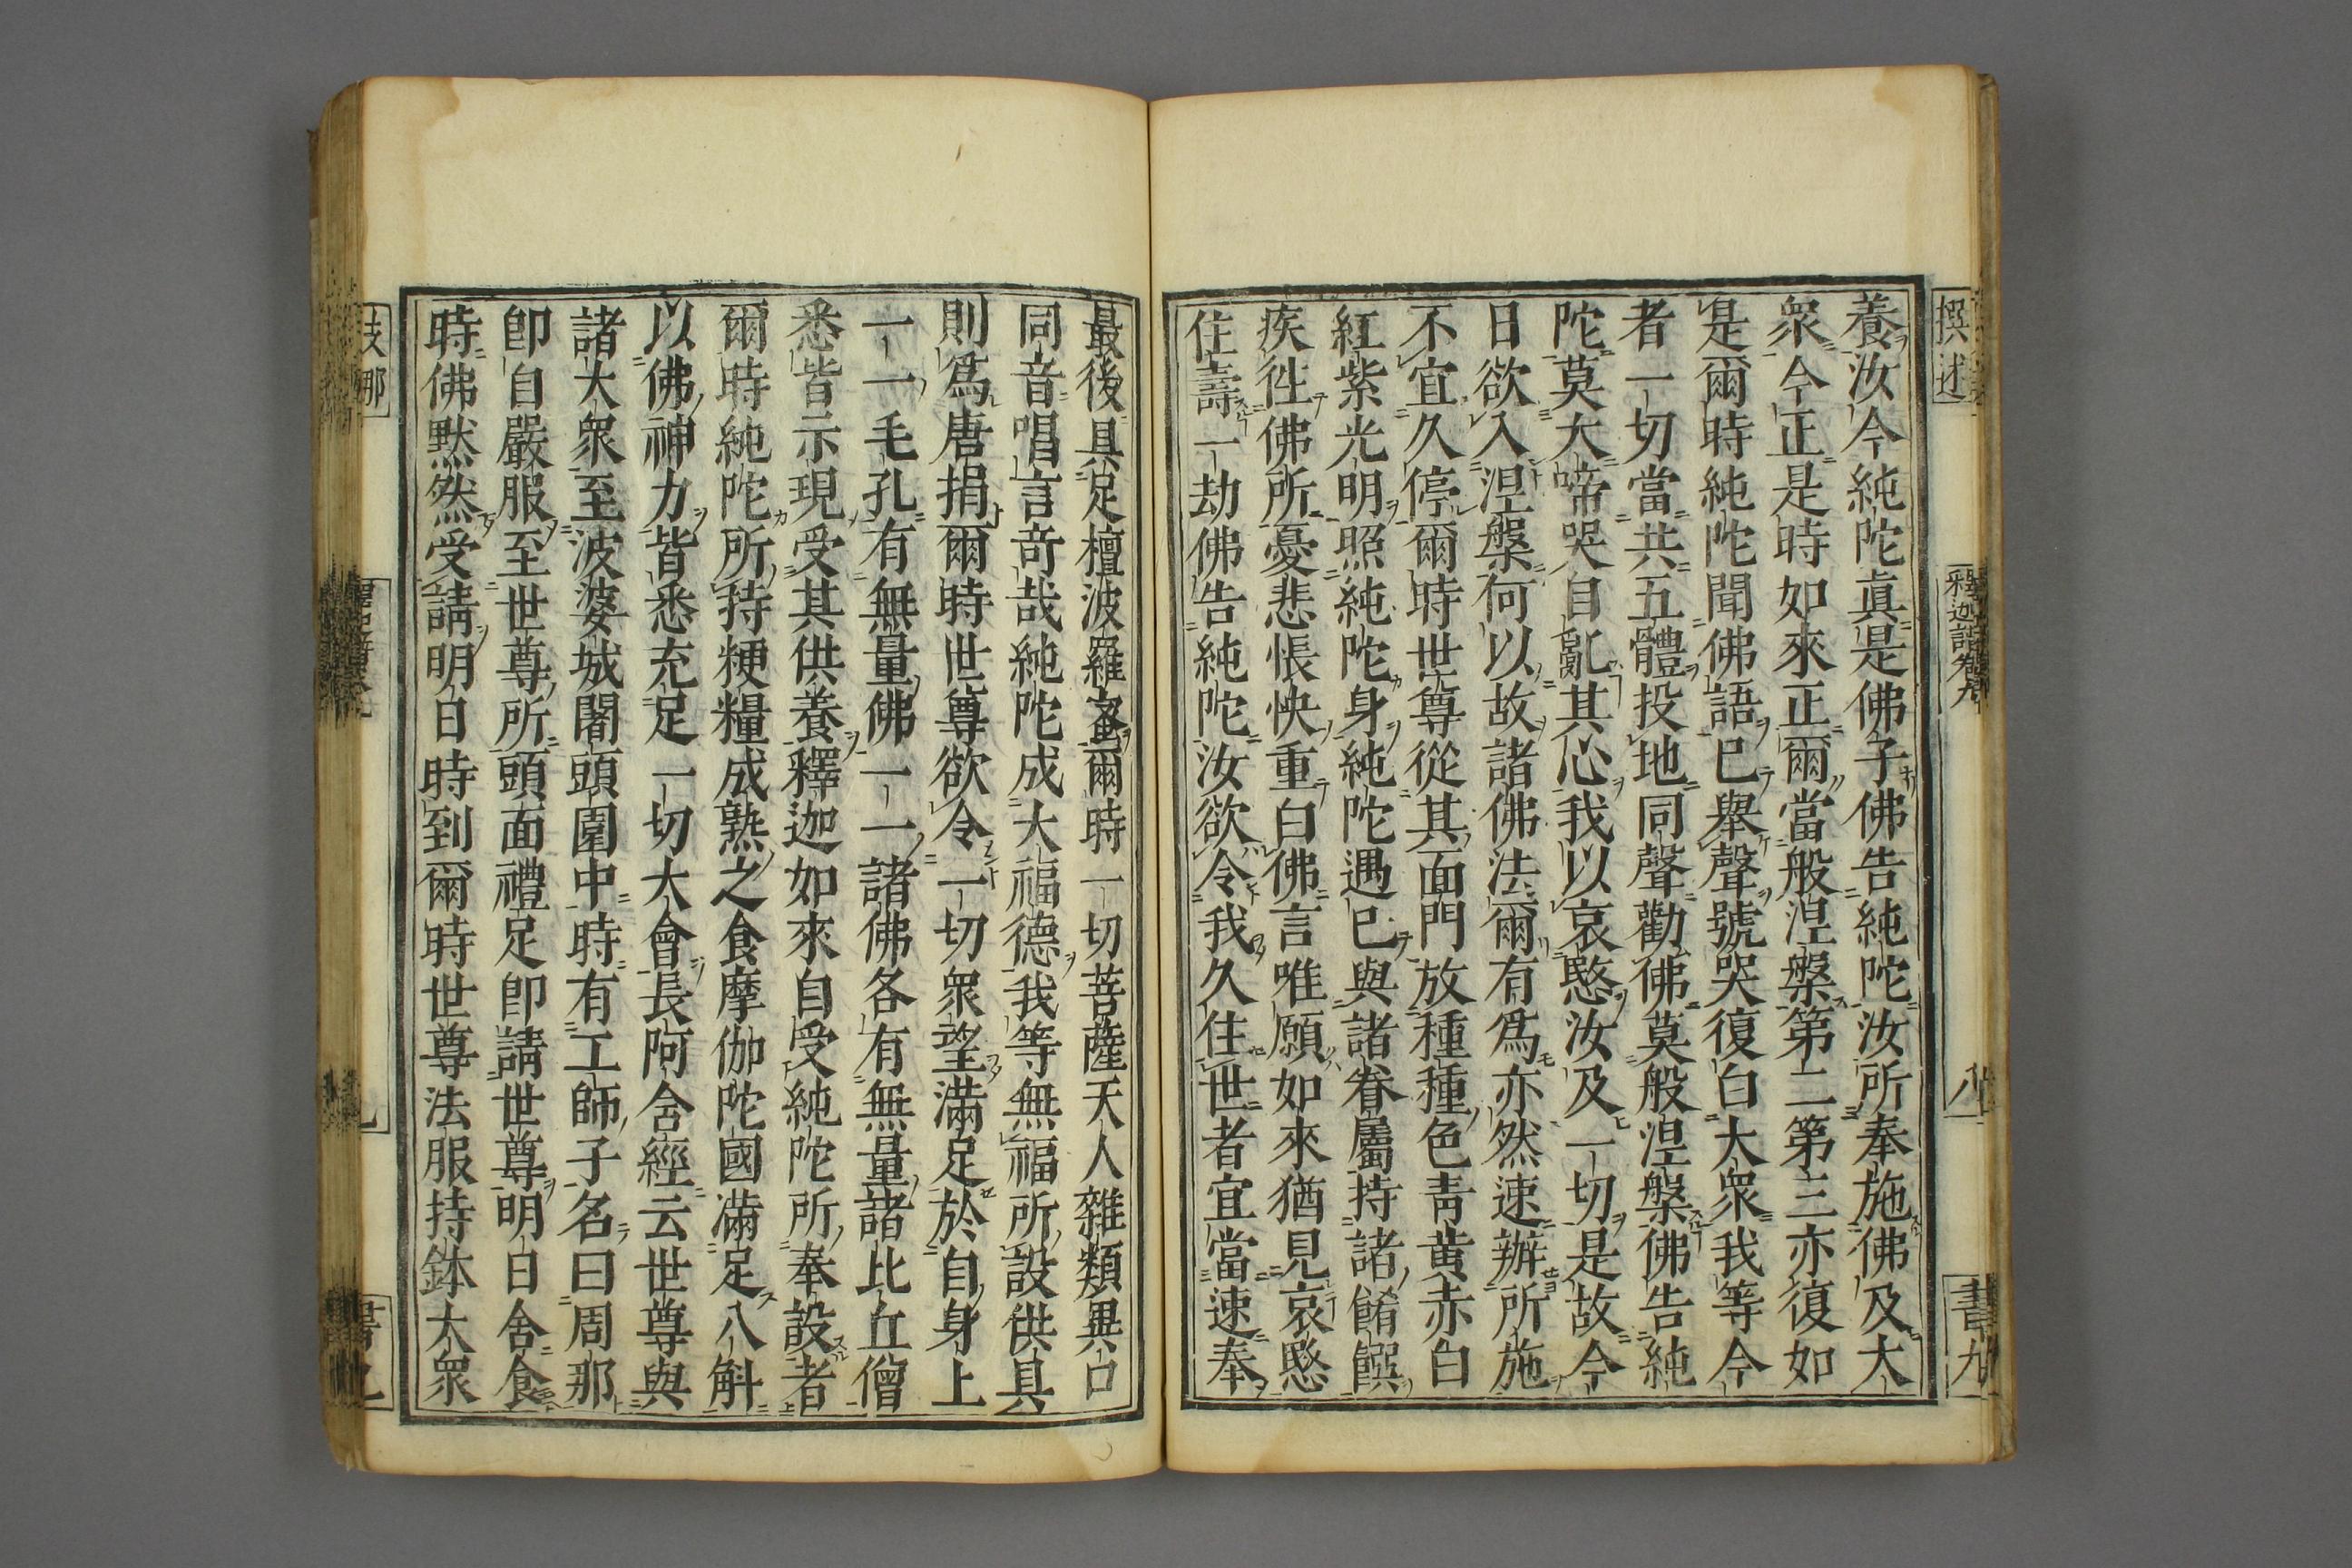 撰述
釋迦譜卷九
八
書九
養汝今純陀真是佛子佛告純陀汝所奉施佛及大
眾今正是時如來正爾當般涅槃第二第三亦復如
是爾時純陀聞佛語已舉聲號哭復白大眾我等今
者一切當共五體投地同聲勸佛莫般涅槃佛告純
陀莫大啼哭自亂其心我以哀愍汝及一切是故今
日欲入涅槃何以故諸佛法爾有為亦然速辦所施
不宜久停爾時世尊從其面門放種種色青黃赤白
紅紫光明照純陀身純陀遇已與諸眷屬持諸餚饌
疾徃佛所憂悲悵怏重白佛言唯願如來猶見哀愍
住壽一劫佛告純陀汝欲令我久住世者宜當速奉
最後具足檀波羅蜜爾時一切菩薩天人雜類異口
同音唱言奇哉純陀成大福德我等無福所設供具
則為唐捐爾時世尊欲令一切眾望滿足於自身上
一一毛孔有無量佛一一諸佛各有無量諸比丘僧
悉皆示現受其供養釋迦如來自受純陀所奉設者
爾時純陀所持粳糧成熟之食摩伽陀國滿足八斛
以佛神力皆悉充足一切大會長阿含經云世尊與
諸大眾至波婆城闍頭園中時有工師子名曰周那
即自嚴服至世尊所頭面禮足即請世尊明日舍食
時佛默然受請明日時到爾時世尊法服持鉢大眾